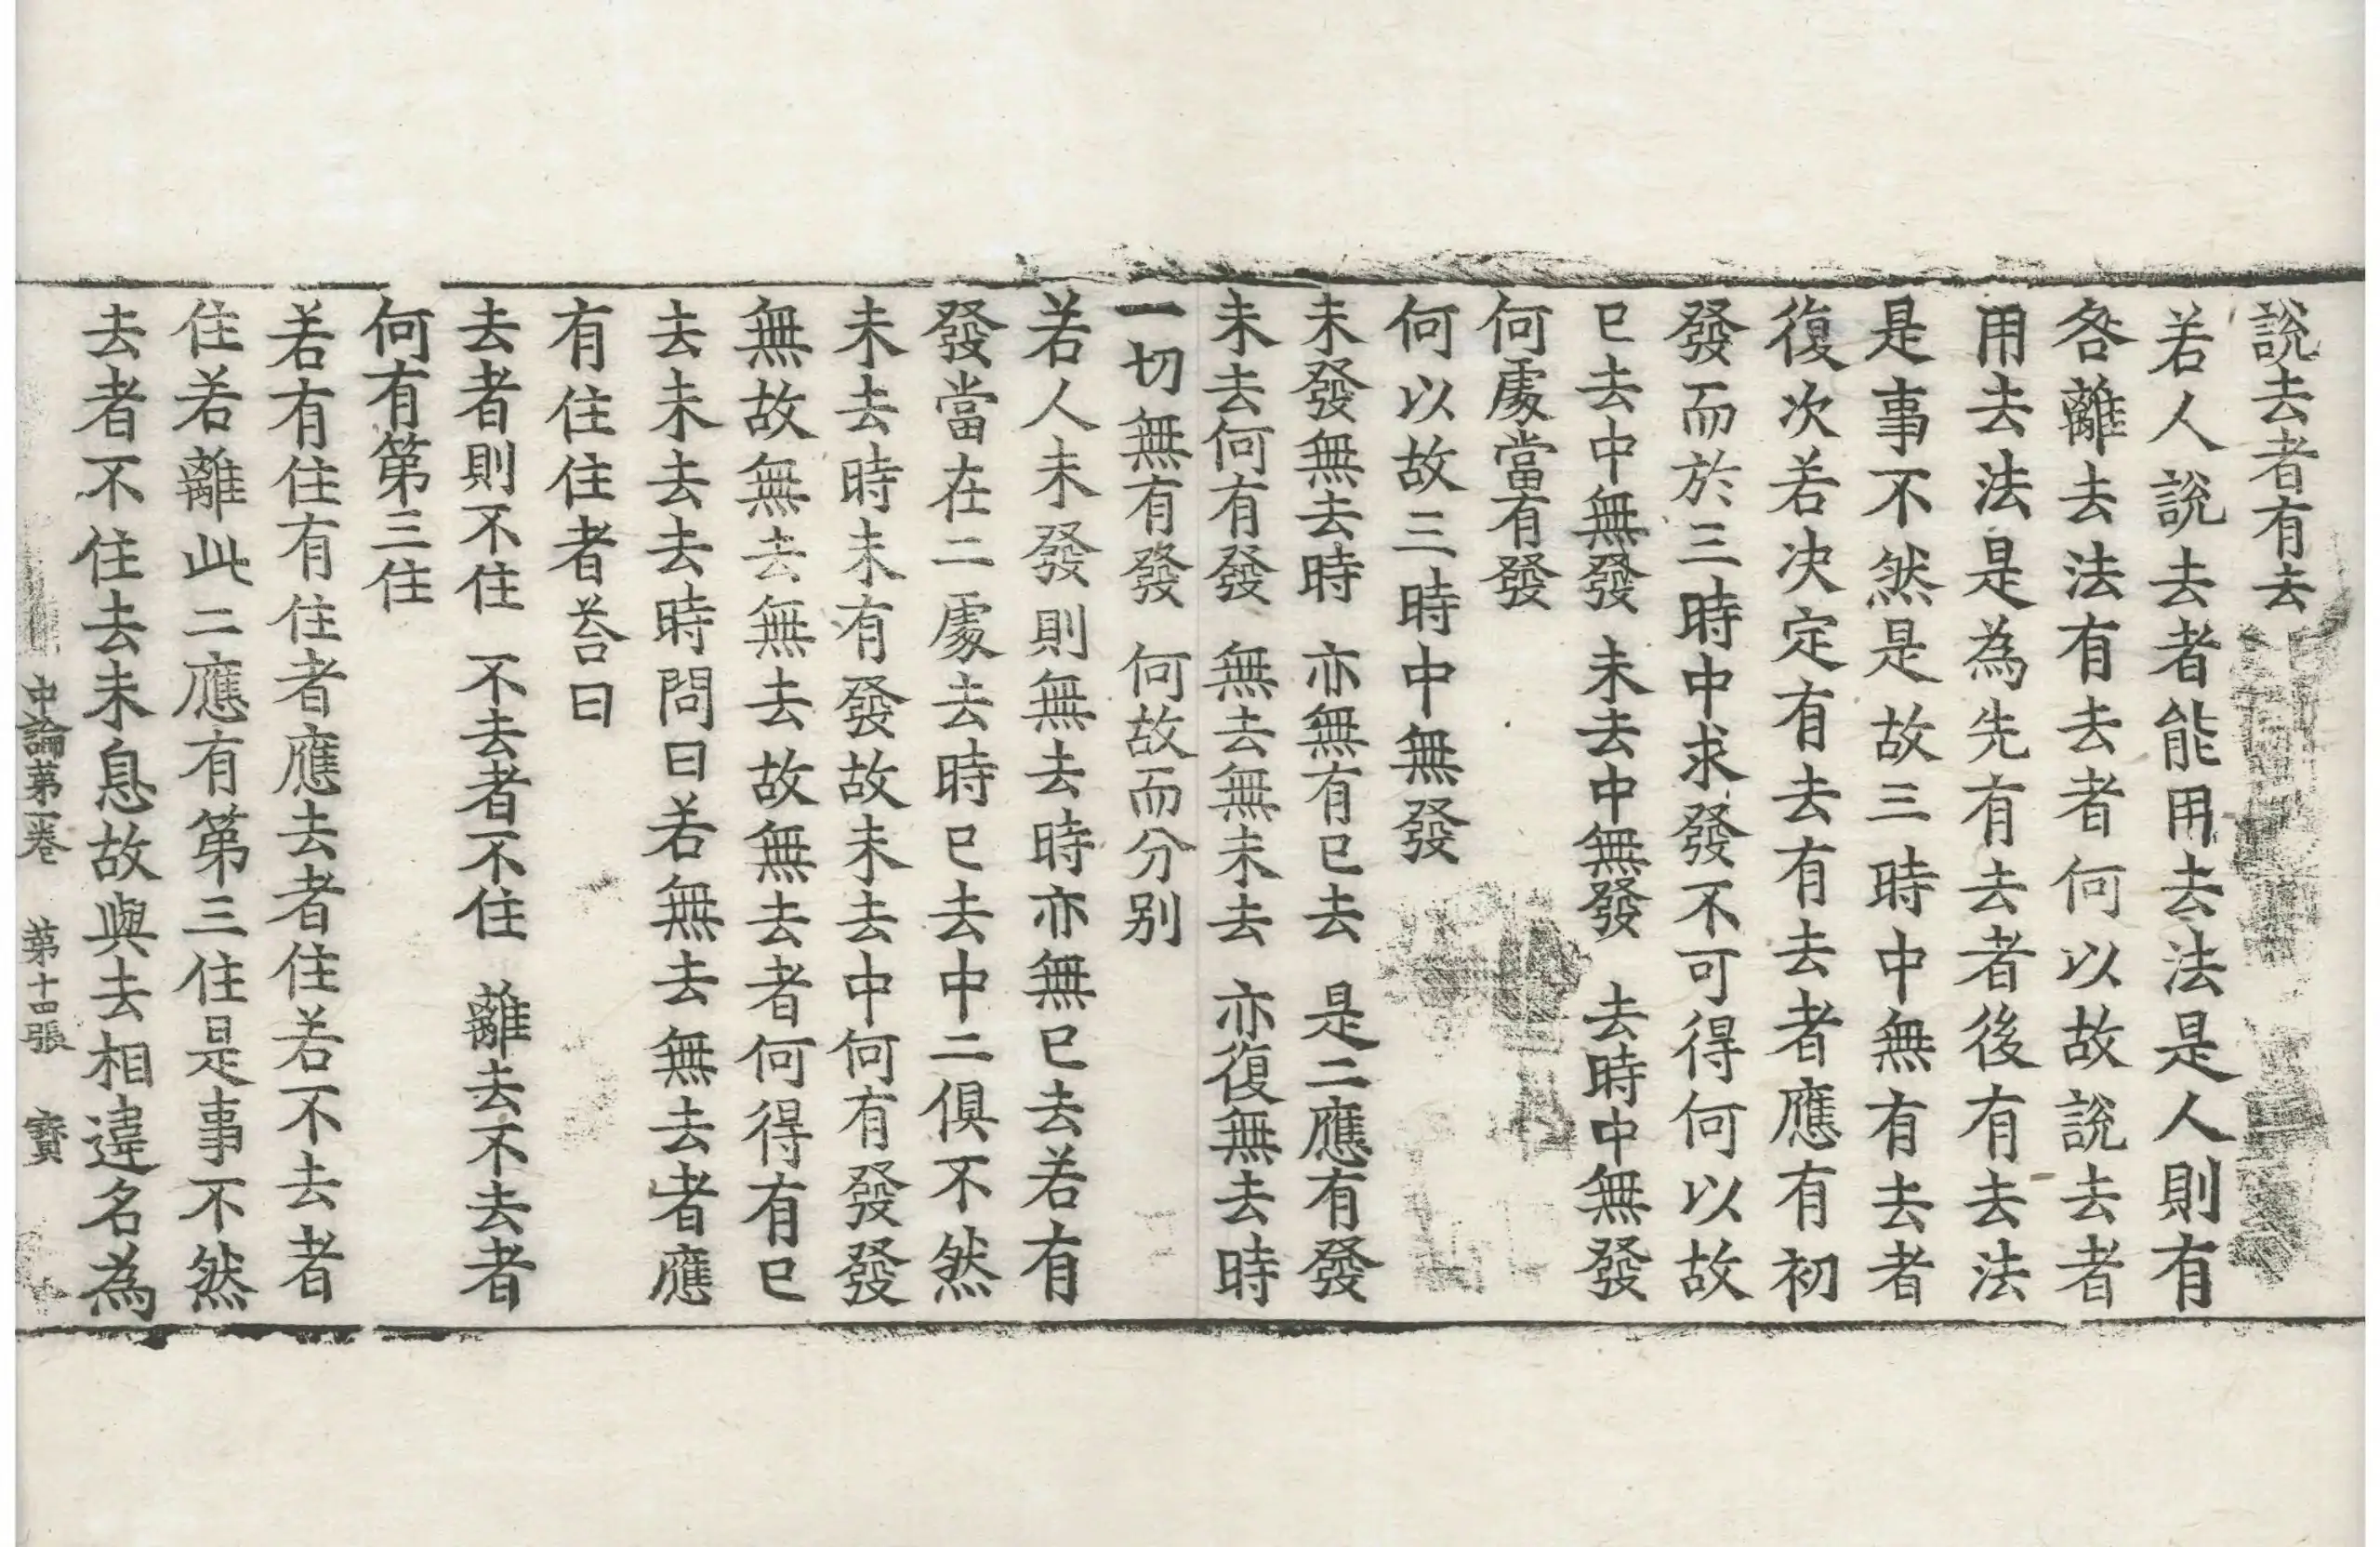 說去者有去
若人說去者能用去法是人則有
咎離去法有去者何以故說去者
用去法是為先有去者後有去法
是事不然是故三時中無有去者
復次若決定有去有去者應有初
發而於三時中求發不可得何以故
已去中無發　未去中無發　去時中無發
何處當有發
何以故三時中無發
未發無去時　亦無有已去　是二應有發
未去何有發　無去無未去　亦復無去時
一切無有發　何故而分別
若人未發則無去時亦無已去若有
發當在二處去時已去中二俱不然
未去時未有發故未去中何有發發
無故無去無去故無去者何得有已
去未去去時問曰若無去無去者應
有住住者荅曰
去者則不住　不去者不住　離去不去者
何有第三住
若有住有住者應去者住若不去者
住若離此二應有第三住是事不然
去者不住去未息故與去相違名為
中論第一卷　第十四張　寳